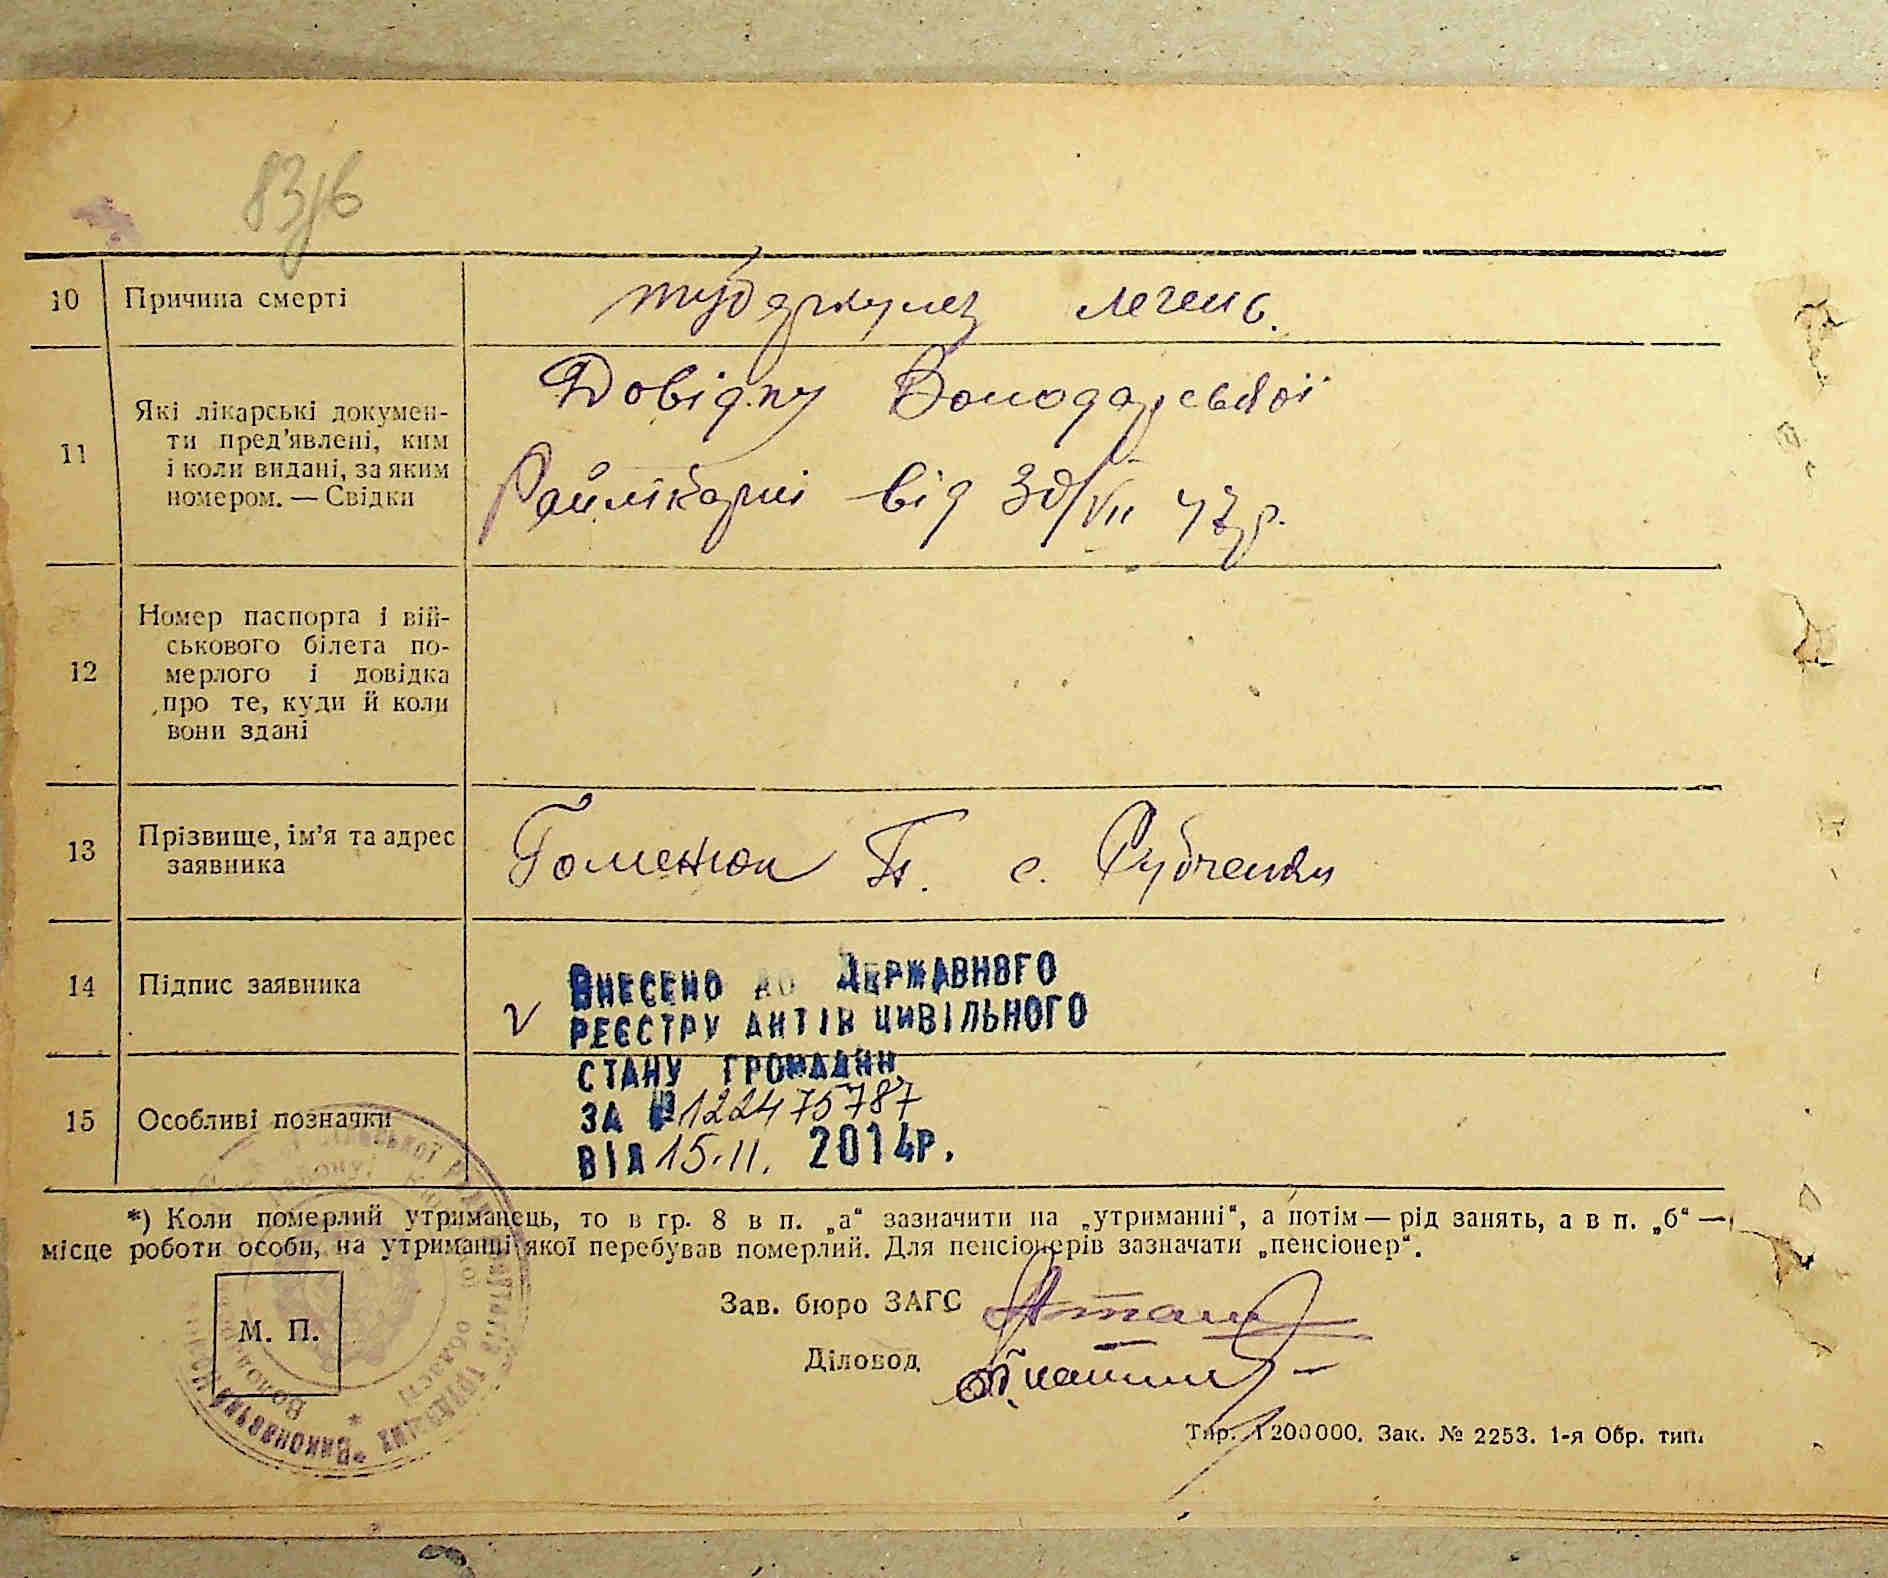 10 Причина смерті туберкулез легень.
11 Які лікарські докумен-
ти пред'явлені, ким
і коли видані, за яким
номером. — Свідки
Довідку Володарської
Райлікарні від 30/VII 47 р.
12 Номер паспорта і вій-
ськового білета по-
мерлого і довідка
про те, куди й коли
вони здані
13 Прізвище, ім'я та адрес
заявника
Гоменюк П. с. Рубченки
14 Підпис заявника
15 Особливі позначки
V ВНЕСЕНО ДО ДЕРЖАВНОГО
РЕЄСТРУ АКТІВ ЦИВІЛЬНОГО
СТАНУ ГРОМАДЯН
ЗА № 122475787
ВІД 15.11. 2014Р.
*) Коли померлий утриманець, то в гр. 8 в п. „а“ зазначити на „утриманні“, а потім — рід занять, а в п. „б“ —
місце роботи особи, на утриманні якої перебував померлий. Для пенсіонерів зазначати „пенсіонер“.
М. П.
Зав. бюро ЗАГС
Діловод
Тир. 1200000. Зак. № 2253. 1-я Обр. тип.